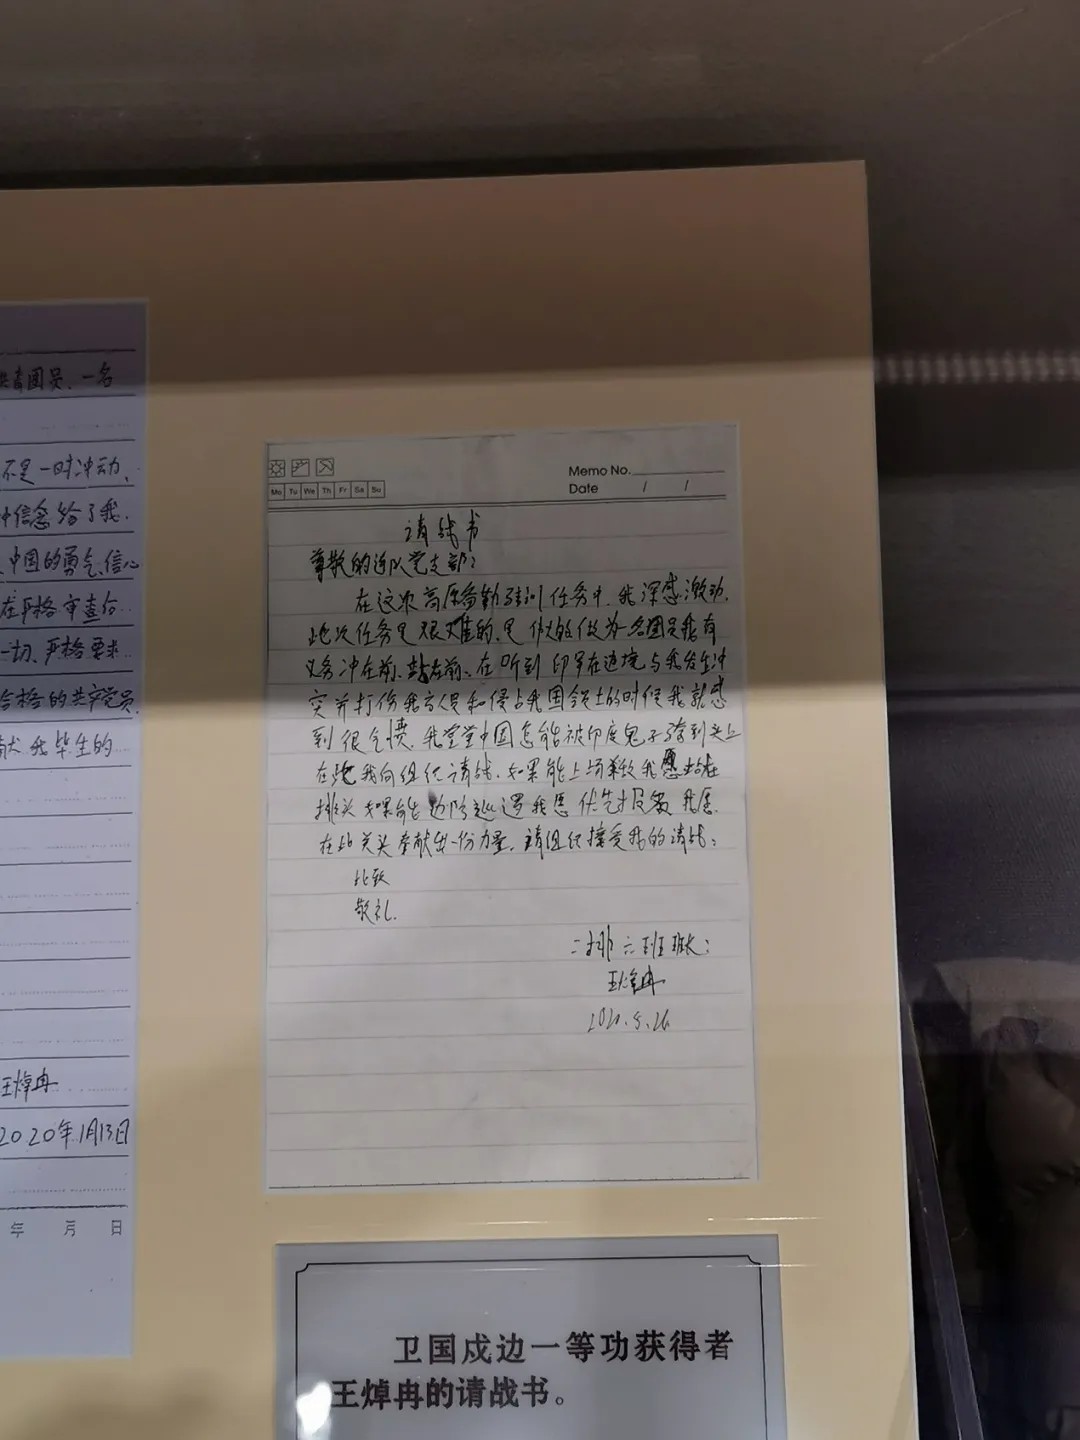 共青团员、一名
不是一时冲动、
信念给了我
中国的勇气、信心
在严格审查合
一切、严格要求
合格的共产党员
献我毕生的
王焯冉
2020年1月13日
年 月 日
Memo No.
Mo Tu We Th Fr Sa Su
Date / /
请战书
尊敬的连队党支部：
在这次高原备勤驻训任务中，我深感激动，
此次任务是艰难的、是伟大的做为一名团员我有
义务冲在前、站在前、在听到印军在边境与我发生冲
突并打伤我方人员和侵占我国领土的时候我就感
到很气愤，我堂堂中国怎能被印度鬼子骑到头上
在此我向组织请战，如果能上场杀敌我愿站在
排头如果能边防巡逻我愿 我愿
在此关头奉献出一份力量，请组织接受我的请战：
此致
敬礼
二排六班班长：
王焯冉
2020.5.26
卫国戍边一等功获得者
王焯冉的请战书。